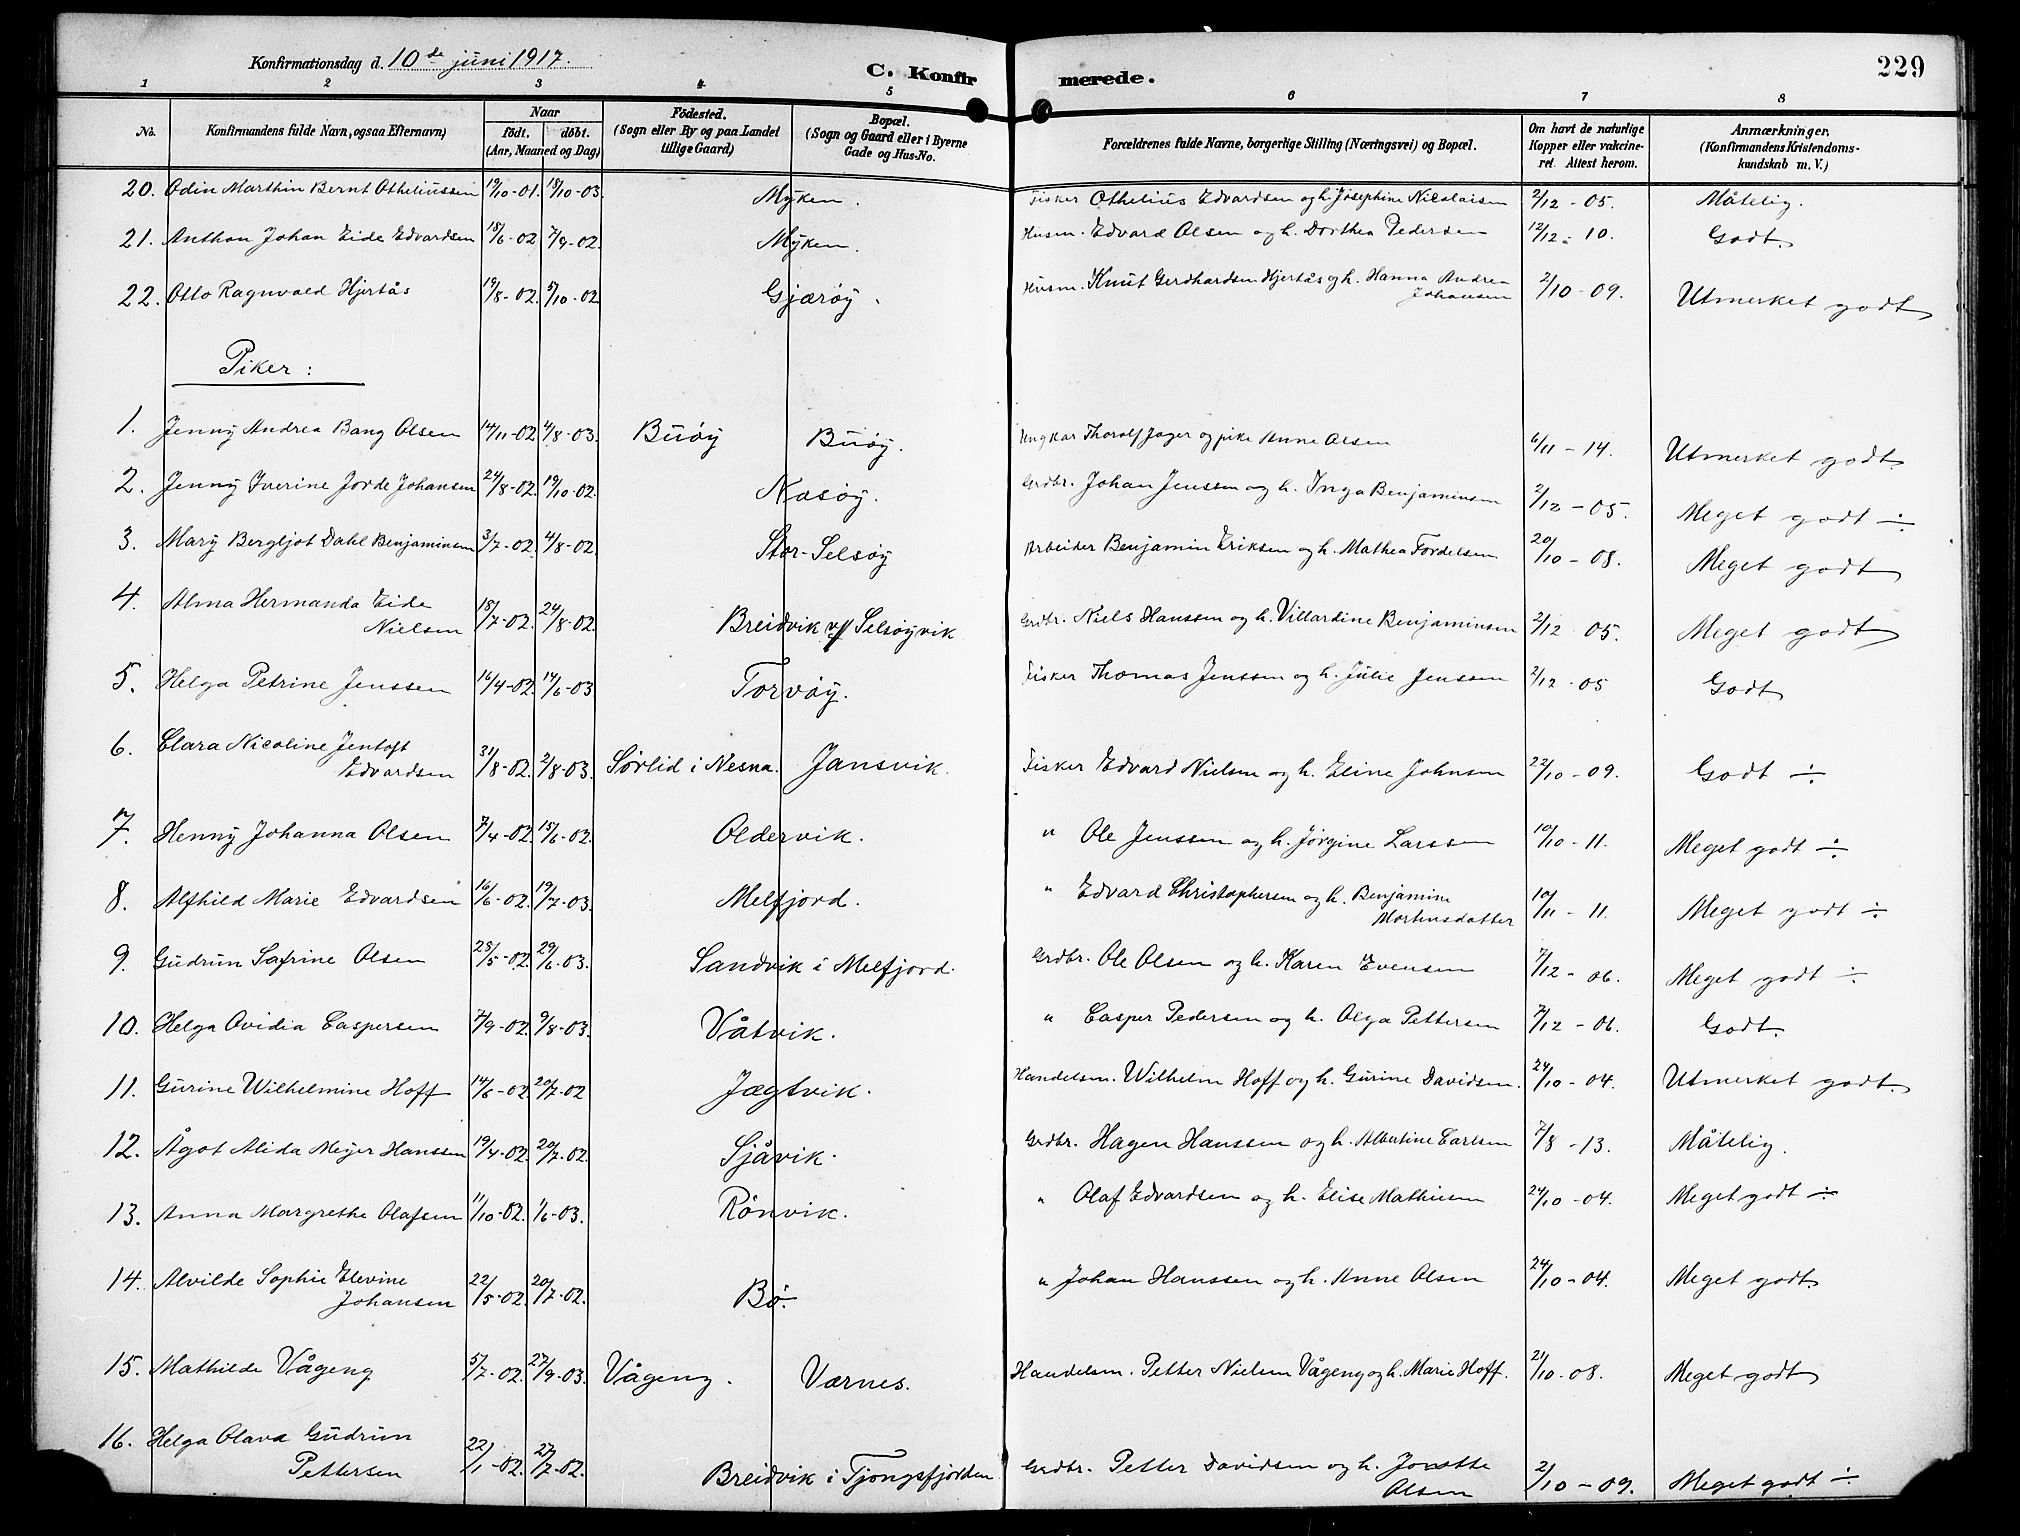 Konfirmationsdag d. 10de juni 1917.
C. Konfirmerede.
229
1 2 3 4 5 6 7 8
No. Konfirmandens fulde Navn, ogsaa Efternavn) Naar født. døbt. (Aar, Maaned og Dag) Födested. (Sogn eller By og paa Landet tillige Gaard) Bopæl. (Sogn og Gaard eller i Byerne Gade og Hus-No. Forældrenes fulde Navne, borgerlige Stilling (Næringsvei) og Bopæl. Om havt de naturlige Kopper eller vakcineret. Attest herom. Anmærkninger. (Konfirmandens Kristendomskundskab m. V.)
20. Odin Marthin Bernt Otheliussen 19/10-01. 18/10-03. Myken. Fisker Othelius Edvardsen og h. Josephine Nicolaisen 2/12-05. Måtelig.
21. Anthon Johan Eide Edvardsen 18/6-02 7/9-02. Myken. Husm. Edvard Olsen og h. Dorthea Pedersen 12/12-10. Godt.
22. Otto Ragnvald Hjertås 19/8-02. 5/10-02. Gjærøy. Husm. Knut Gerdhardsen Hjertås og h. Hanna Andrea Johansen 2/10-09. Utmerket godt
Piker:
1. Jenny Andrea Bang Olsen 14/11-02 4/8-03. Buøy Buøy. Ungkar Thorolf Jager og pike Anne Olsen 6/11-14. Utmerket godt
2. Jenny Iverine Jorde Johansen 24/8-02. 19/10-02. Nasøy. Grdbr. Johan Jenssen og h. Inga Benjaminsen 2/12-05. Meget godt ÷
3. Mary Bergljot Dahl Benjaminsen 3/7-02. 4/8-02. Stor-Selsøy Arbeider Benjamin Eriksen og h. Mathea Fordelsen 20/10-08. Meget godt
4. Alma Hermanda Eide Nielsen 18/7-02. 24/8-02. Breidvik v/ Selsøyvik Grdbr. Niels Hanssen og h. Villardine Benjaminsen 2/12-05. Meget godt
5. Helga Petrine Jenssen 16/4-02. 14/6-03 Torvøy. Fisker Thomas Jenssen og h. Julie Jenssen 2/12-05 Godt
6. Clara Nicoline Jentoft Edvardsen 31/8-02. 2/8-03. Sørlid i Nesna. Jansvik. Fisker Edvard Nielsen og h. Eline Johnsen 22/10-09. Godt ÷
7. Henny Johanna Olsen 7/4-02. 15/6-02. Oldervik. " Ole Jenssen og h. Jørgine Larssen 10/10-11. Meget godt ÷
8. Alfhild Marie Edvardsen 16/6-02. 19/7-03. Melfjord. " Edvard Christophersen og h. Benjamine Mortensdatter 10/11-11. Meget godt ÷
9. Gudrun Safrine Olsen 28/5-02. 29/6-03. Sandvik i Melfjord. Grdbr. Ole Olsen og h. Karen Evensen 7/12-06. Meget godt ÷
10. Helga Ovidia Caspersen 7/9-02. 9/8-03. Våtvik. " Casper Pedersen og h. Olga Pettersen 7/12-06. Godt.
11. Gurine Wilhelmine Hoff 14/6-02. 20/7-02 Jægtvik. Handelsm. Wilhelm Hoff og h. Gurine Davidsen. 24/10-04. Utmerket godt.
12. Ågot Alida Meyer Hanssen 19/4-02. 20/7-02. Sjåvik. Grdbr. Hagen Hanssen og h. Albertine Carlsen 7/8-13. Måtelig.
13. Anna Margrethe Olafsen 11/10-02. 1/6-03. Rønvik. " Olaf Edvardsen og h. Elise Mathisen 24/10-04. Meget godt ÷
14. Alvilde Sophie Elevine Johansen 22/5-02. 20/7-02. Bø. " Johan Hanssen og h. Anne Olsen 24/10-04. Meget godt
15. Mathilde Vågeng 5/7-02. 27/9-03. Vågeng. Værnes. Handelsm. Petter Nielsen Vågeng og h. Marie Hoff. 21/10-08. Meget godt
16. Helga Olava Gudrun Pettersen 22/1-02. 27/7-02. Breidvik i Tjongsfjorden Grdbr. Petter Davidsen og h. Jonette Olsen 2/10-09. Meget godt ÷